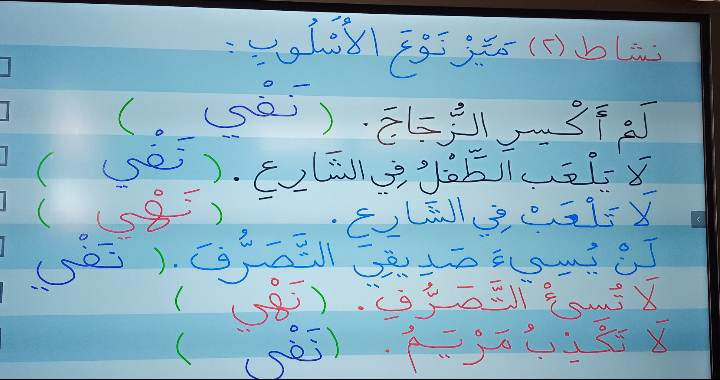 نشاط (٢) مَيِّزْ نَوْعَ الأُسْلُوبِ :
لَمْ أَكْسِرِ الزُّجَاجَ. ( نَفْي )
لَا يَلْعَبُ الطِّفْلُ فِي الشَّارِعِ. ( نَفْي )
لَا تَلْعَبْ فِي الشَّارِعِ. ( نَهْي )
لَنْ يُسِيءَ صَدِيقِيَ التَّصَرُّفَ. ( نَفْي )
لَا تُسِئْ التَّصَرُّفِ. ( نَهْي )
لَا تَكْذِبُ مَرْيَمُ. ( نَفْي )